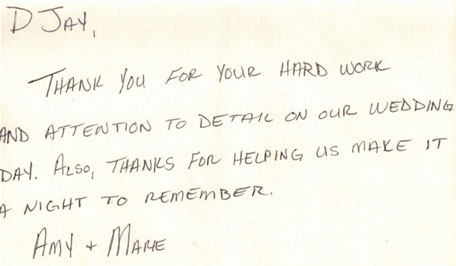 D Jay,
Thank you for your hard work
and attention to detail on our wedding
day. Also, thanks for helping us make it
a night to remember.
Amy + Marie